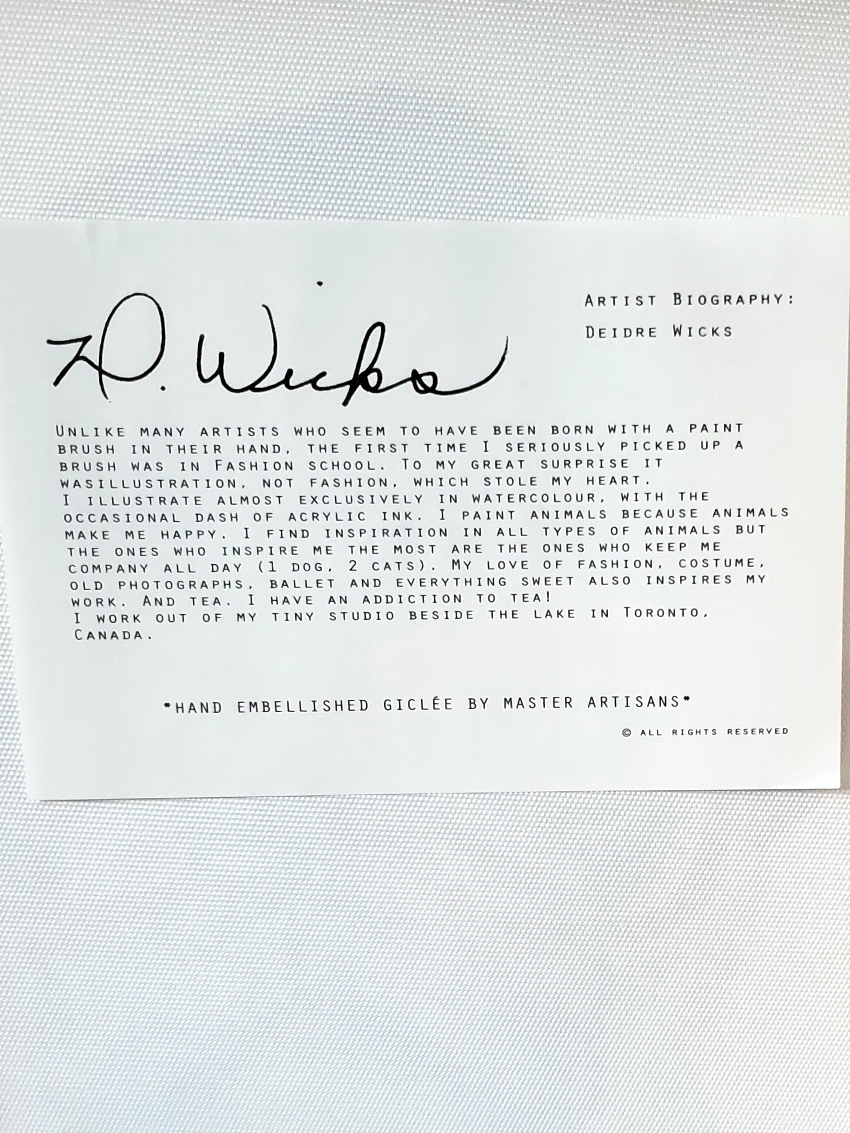 D. Wicks
ARTIST BIOGRAPHY:
DEIDRE WICKS
UNLIKE MANY ARTISTS WHO SEEM TO HAVE BEEN BORN WITH A PAINT
BRUSH IN THEIR HAND, THE FIRST TIME I SERIOUSLY PICKED UP A
BRUSH WAS IN FASHION SCHOOL. TO MY GREAT SURPRISE IT
WASILLUSTRATION, NOT FASHION, WHICH STOLE MY HEART.
I ILLUSTRATE ALMOST EXCLUSIVELY IN WATERCOLOUR, WITH THE
OCCASIONAL DASH OF ACRYLIC INK. I PAINT ANIMALS BECAUSE ANIMALS
MAKE ME HAPPY. I FIND INSPIRATION IN ALL TYPES OF ANIMALS BUT
THE ONES WHO INSPIRE ME THE MOST ARE THE ONES WHO KEEP ME
COMPANY ALL DAY (1 DOG, 2 CATS). MY LOVE OF FASHION, COSTUME,
OLD PHOTOGRAPHS, BALLET AND EVERYTHING SWEET ALSO INSPIRES MY
WORK. AND TEA. I HAVE AN ADDICTION TO TEA!
I WORK OUT OF MY TINY STUDIO BESIDE THE LAKE IN TORONTO,
CANADA.
*HAND EMBELLISHED GICLÉE BY MASTER ARTISANS*
© ALL RIGHTS RESERVED